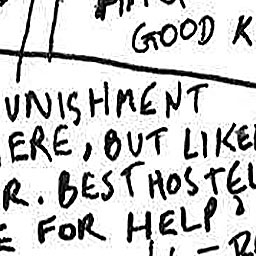 GOOD K
UNISHMENT
ERE, BUT LIKE
R. BEST HOSTEL
E FOR HELP?